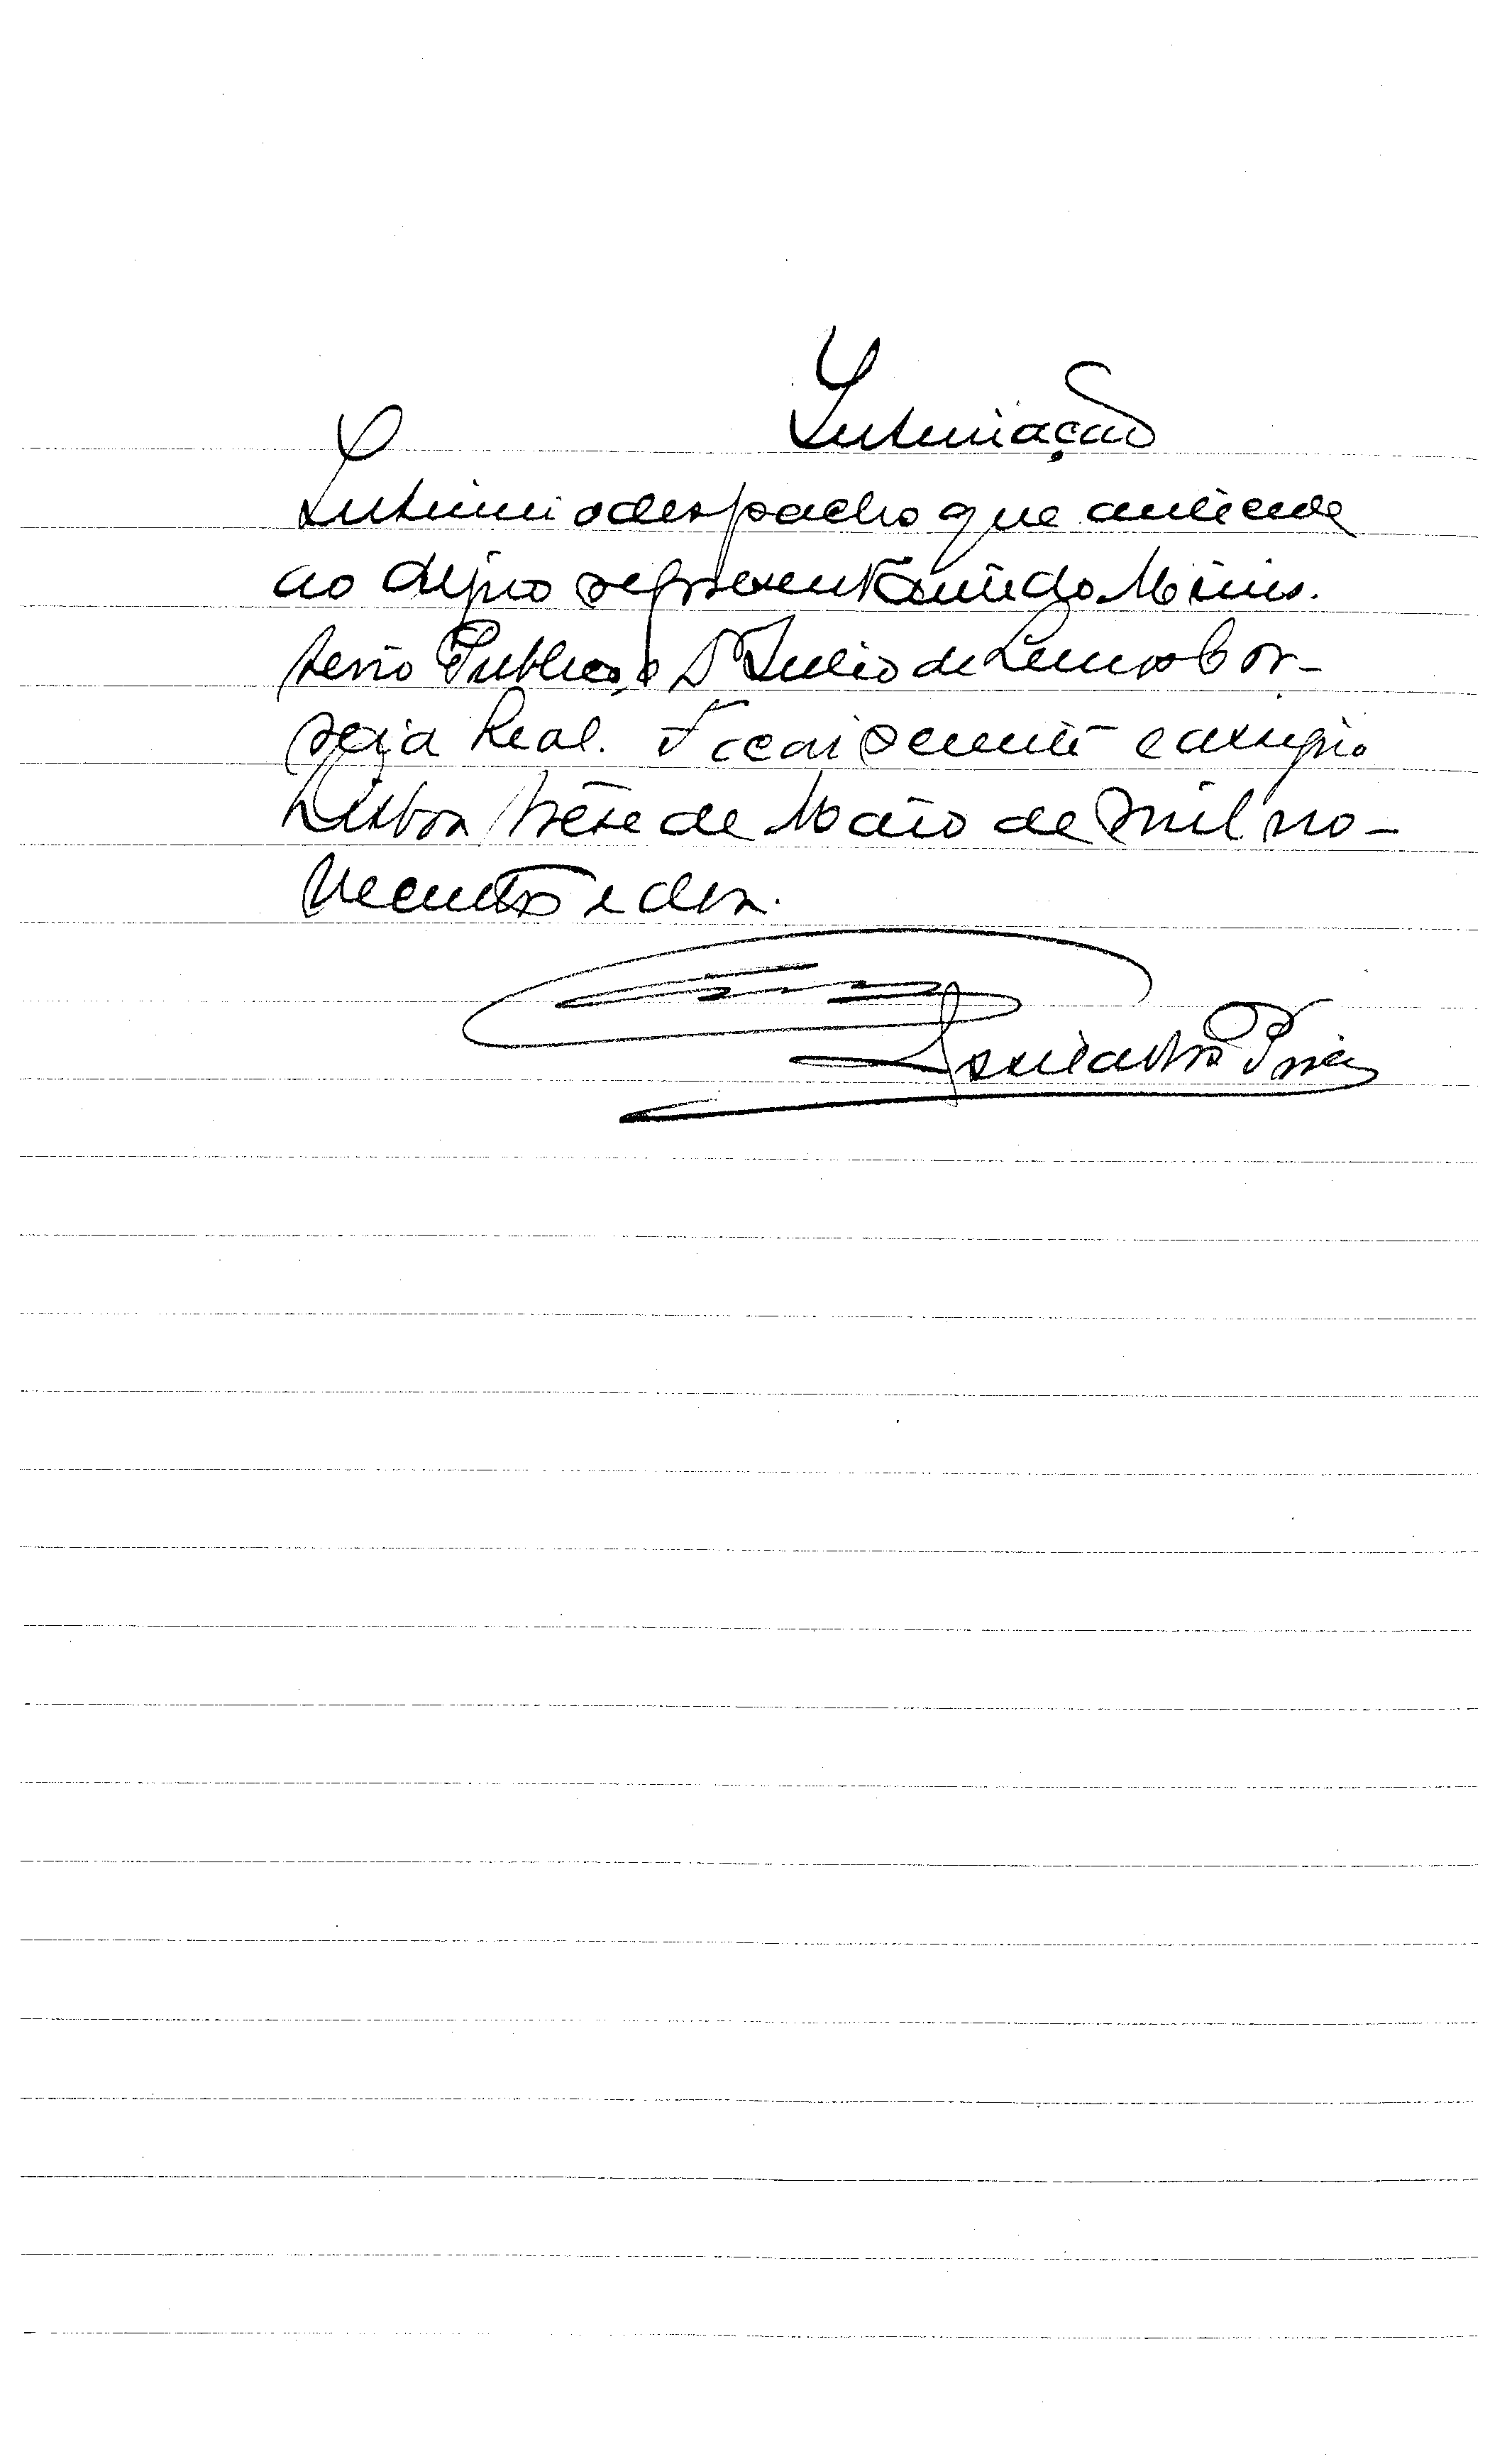 Intimação
Intimei o despacho que antecede
ao digno representante do Minis.
terio Publico, o Dr Julio de Lemos Cor-
reia Leal. Ficou sciente e assigna
Lisboa treze de Maio de mil no-
vecentos e dez.